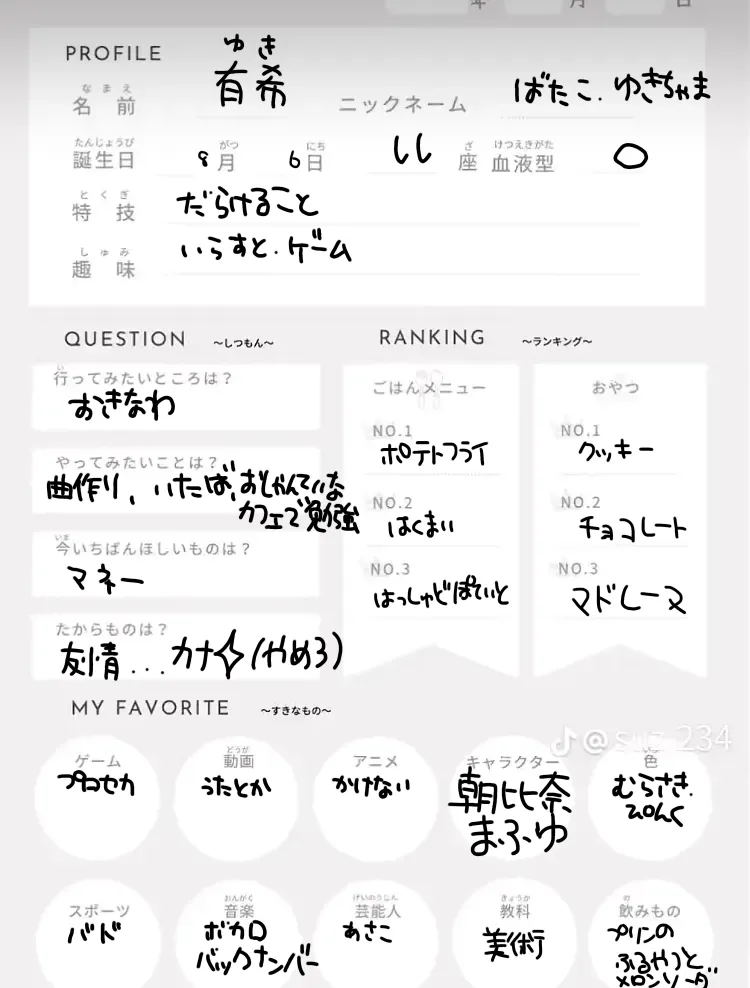 年 月 日
PROFILE
ゆき
なまえ
名前 有希 ニックネーム ばたこ.ゆきちゃま
たんじょうび がつ にち ざ けつえきがた
誕生日 8月 6日 しし座 血液型 O
とくぎ
特技 だらけること
しゅみ
趣味 いらすと.ゲーム
QUESTION ～しつもん～
行ってみたいところは？
おきなわ
やってみたいことは？
曲作り、いたば、おしゃんてぃな
カフェで勉強
いま
今いちばんほしいものは？
マネー
たからものは？
友情...カナ✧(やめろ)
RANKING ～ランキング～
ごはんメニュー
NO.1
ポテトフライ
NO.2
はくまい
NO.3
はっしゅどぽていと
おやつ
NO.1
クッキー
NO.2
チョコレート
NO.3
マドレーヌ
MY FAVORITE ～すきなもの～
@suz_234
ゲーム
プロセカ
どうが
動画
うたとか
アニメ
かけない
キャラクター
朝比奈
まふゆ
色
むらさき.
ぴんく
スポーツ
バド
おんがく
音楽
ボカロ
バックナンバー
げいのうじん
芸能人
あさこ
きょうか
教科
美術
の
飲みもの
プリンの
ふるやつと
メロンソーダ